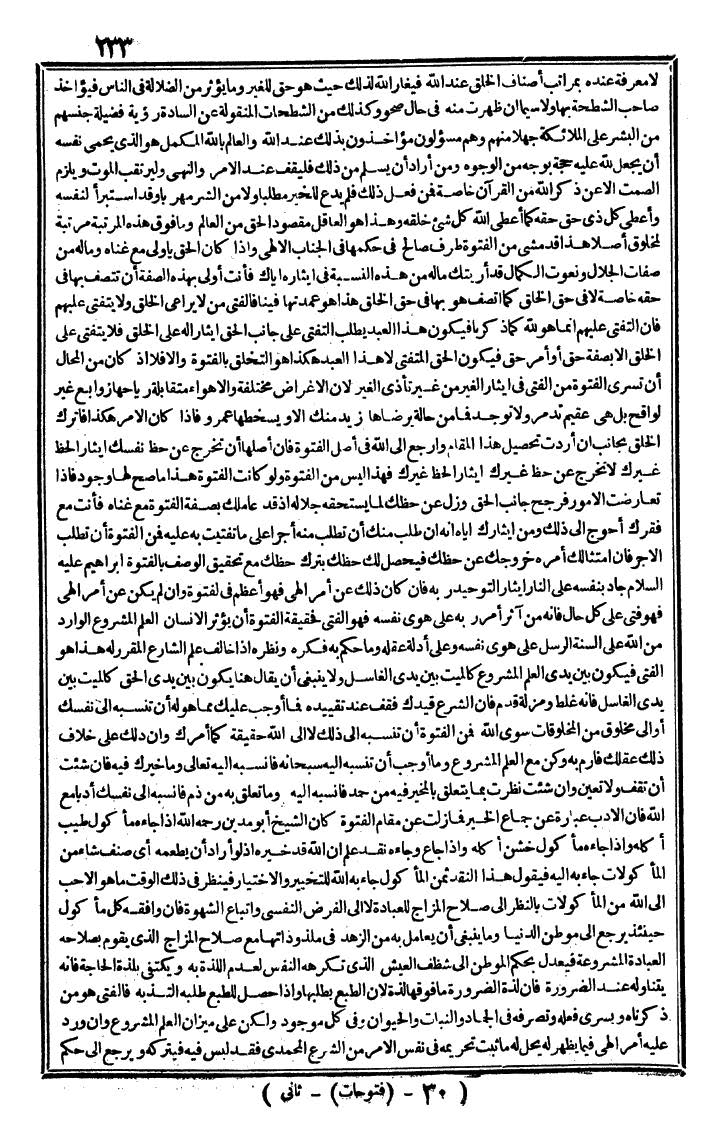 ٢٣٣
لا معرفة عنده بمراتب أصناف الخلق عند الله فيغار الله لذلك حيث هو حق للغير وما يؤثر من الضلالة فى الناس فيؤاخذ
صاحب الشطحة بها ولا سيما ان ظهرت منه فى حال صحو وكذلك من الشطحات المنقولة عن السادة رؤية فضيلة جنسهم
من البشر على الملائكة جهلا منهم وهم مسؤلون مؤاخذون بذلك عند الله والعالم بالله المكمل هو الذى يحمى نفسه
أن يجعل لله عليه حجة بوجه من الوجوه ومن أراد أن يسلم من ذلك فليقف عند الامر والنهى وليرتقب الموت ويلزم
الصمت الا عن ذكر الله من القرآن خاصة فمن فعل ذلك فلم يدع للخير مطلبا ولا من الشر مهربا وقد استبرأ لنفسه
وأعطى كل ذى حق حقه كما أعطى الله كل شئ خلقه وهذا هو العاقل مقصود الحق من العالم وما فوق هذه المرتبة مرتبة
لمخلوق أصلا هذا قد مشى من الفتوة طرف صالح فى حكمها فى الجناب الالهى واذا كان الحق باولى مع غناه وماله من
صفات الجلال ونعوت الكمال قد أربتك ماله من هذه النسبة فى ايثاره اياك فأنت أولى بهذه الصفة أن تتصف بها فى
حقه خاصة لا فى حق الخلق كما اتصف هو بها فى حق الخلق هذا هو عمدتها فينا فالفتى من لا يراعى الخلق ولا يتفتى عليهم
فان التفتى عليهم انما هو لله كما ذكرنا فيكون هذا العبد يطلب التفتى على جانب الحق ايثار اله على الخلق فلا يتفتى على
الخلق الا بصفة حق أو أمر حق فيكون الحق المتفتى لا هذا العبد هكذا هو التخلق بالفتوة والا فلا اذ كان من المحال
أن تسرى الفتوة من الفتى فى ايثار الغير من غير تأذى الغير لان الاغراض مختلفة والاهواء متقابلة رياحها زوابع غير
لواقح بل هى عقيم تدمر ولا توجد فما من حالة يرضاها زيد منك الا ويسخطها عمرو فاذا كان الامر هكذا فاترك
الخلق بجانب ان أردت تحصيل هذا المقام وارجع الى الله فى أصل الفتوة فان أصلها أن تخرج عن حظ نفسك ايثار الحظ
غيرك لا تخرج عن حظ غيرك ايثار الحظ غيرك فهذا ليس من الفتوة ولو كانت الفتوة هذا ما صح لها وجود فاذا
تعارضت الامور فرجح جانب الحق وزل عن حظك لما يستحقه جلاله اذ قد عاملك بصفة الفتوة مع غناه فأنت مع
فقرك أحوج الى ذلك ومن ايثارك اياه انه ان طلب منك أن تطلب منه أجرا على ما تفتيت به عليه فمن الفتوة أن تطلب
الاجر فان امتثالك أمره خروجك عن حظك فيحصل لك حظك بترك حظك مع تحقيق الوصف بالفتوة ابراهيم عليه
السلام جاد بنفسه على النار ايثار التوحيد ربه فان كان ذلك عن أمر الهى فهو أعظم فى الفتوة وان لم يكن عن أمر الهى
فهو فتى على كل حال فانه من آثر أمر ربه على هوى نفسه فهو الفتى فحقيقة الفتوة أن يؤثر الانسان العلم المشروع الوارد
من الله على السنة الرسل على هوى نفسه وعلى أدلة عقله وما حكم به فكره ونظره اذا خالف علم الشارع المقرر له هذا هو
الفتى فيكون بين يدى العلم المشروع كالميت بين يدى الغاسل ولا ينبغى أن يقال هنا يكون بين يدى الحق كالميت بين
يدى الغاسل فانه غلط ومزلة قدم فان الشرع قيدك فقف عند تقييده فما أوجب عليك مما هو له أن تنسبه الى نفسك
أو الى مخلوق من المخلوقات سوى الله فمن الفتوة أن تنسبه الى ذلك لا الى الله حقيقة كما أمرك وان دلك على خلاف
ذلك عقلك فارم به وكن مع العلم المشروع وما أوجب أن تنسبه اليه سبحانه فانسبه اليه تعالى وما خيرك فيه فان شئت
أن تقف ولا تعين وان شئت نظرت بما يتعلق بالمخير فيه من حمد فانسبه اليه وما تعلق به من ذم فانسبه الى نفسك أدبا مع
الله فان الادب عبارة عن جماع الخير فمازلت عن مقام الفتوة كان الشيخ أبو مدين رحمه الله اذا جاءه مأكول طيب
أكله واذا جاءه مأكول خشن أكله واذا جاع وجاءه نقد علم ان الله قد خيره اذ لو أراد أن يطعمه أى صنف شاء من
المأكولات جاءه به اليه فيقول هذا النقد ثمن المأكول جاء به الله للتخيير والاختيار فينظر فى ذلك الوقت ما هو الاحب
الى الله من المأكولات بالنظر الى صلاح المزاج للعبادة لا الى الغرض النفسى واتباع الشهوة فان وافقه كل مأكول
حينئذ يرجع الى موطن الدنيا وما ينبغى أن يعامل به من الزهد فى ملذوذاتها مع صلاح المزاج الذى يقوم بصلاحه
العبادة المشروعة فيعدل بحكم الموطن الى شظف العيش الذى تكرهه النفس لعدم اللذة به ويكتفى بلذة الحاجة فانه
يتناوله عند الضرورة فان لذة الضرورة ما فوقها لذة لان الطبع يطلبها واذا حصل للطبع طلبه التذ به فالفتى هو من
ذكرناه ويسرى فعله وتصرفه فى الجماد والنبات والحيوان وفى كل موجود ولكن على ميزان العلم المشروع وان ورد
عليه أمر الهى فيما يظهر له يحل له ما ثبت تحريمه فى نفس الامر من الشرع المحمدى فقد لبس فيه فيتركه ويرجع الى حكم
( ٣٠ - (فتوحات) - ثانى )